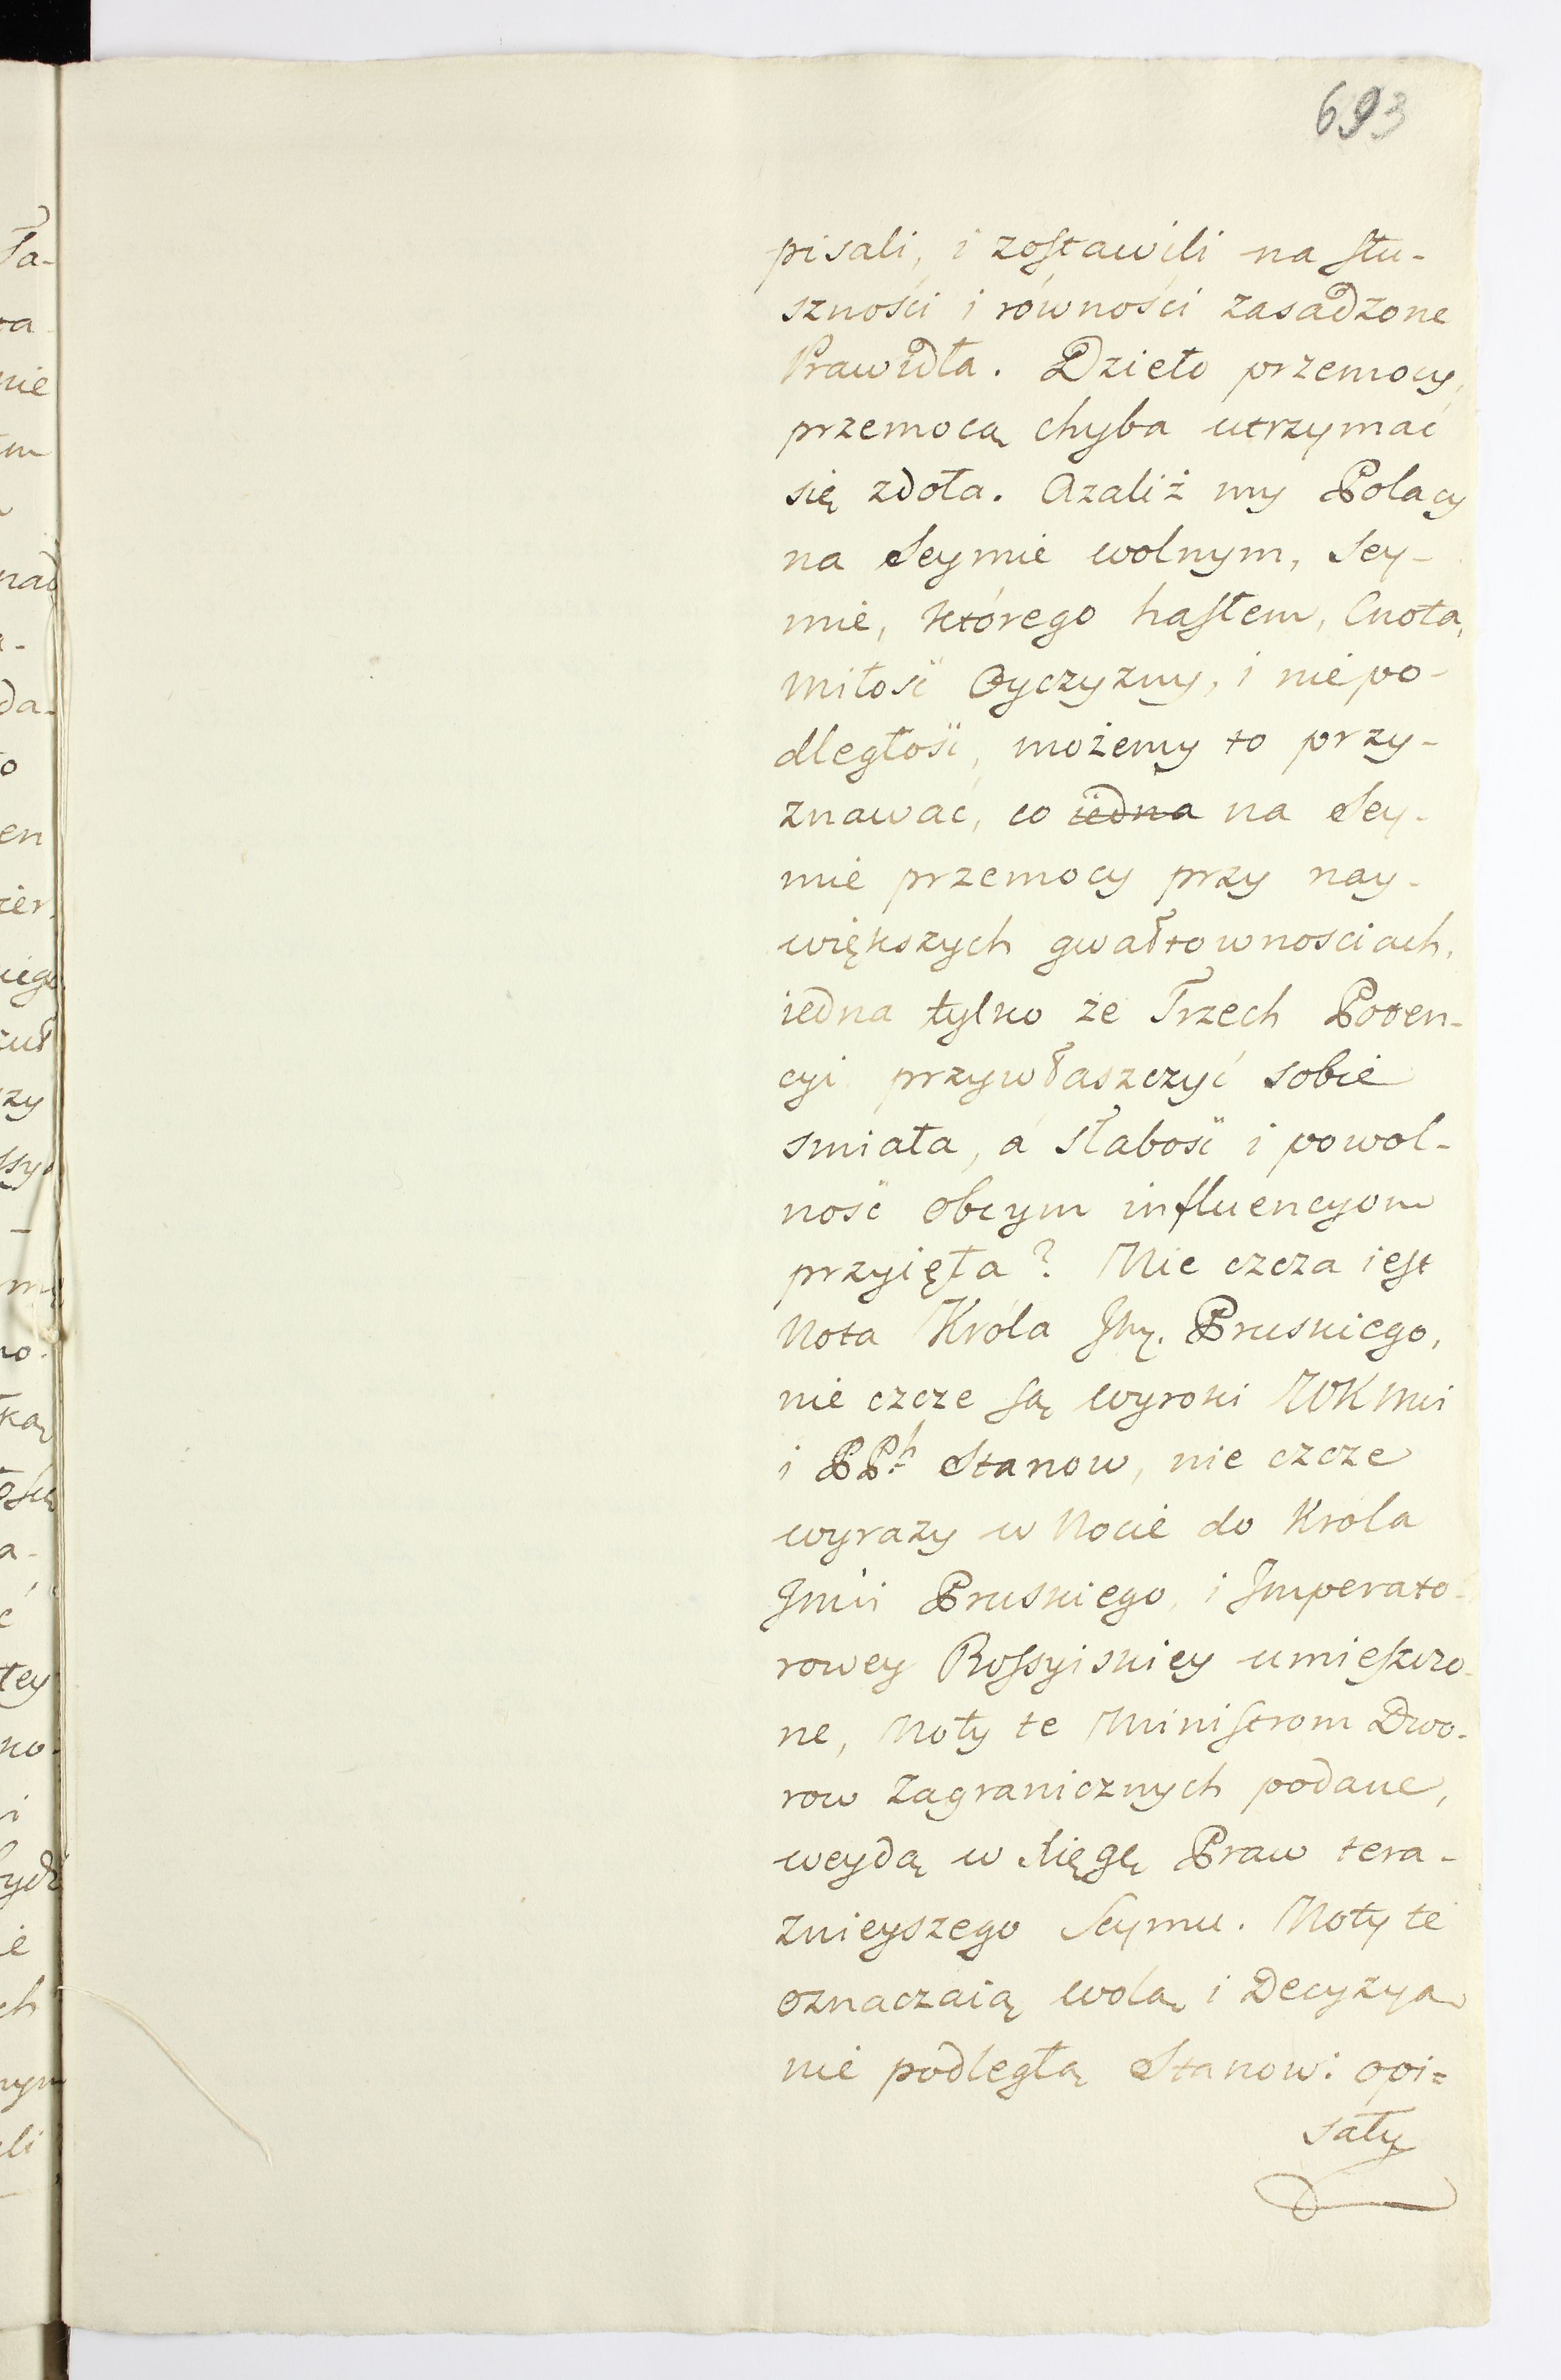 693
pisali, i zostawili na słu-
szności i równości zasadzone
Prawidła. Dzieło przemocy,
przemocą chyba utrzymać
się zdoła. Azaliż my Polacy
na Seymie wolnym, Sey-
mie, którego hasłem, Cnota,
miłość Oyczyzny, i niepo-
dległość, możemy to przy-
znawać, co iedna na Sey-
mie przemocy przy nay-
większych gwałtownościach,
iedna tylko ze Trzech Poten-
cyi przywłaszczyć sobie
smiała, a słabość i powol-
ność obcym influencyom
przyięła? Nie czcza iest
Nota Króla Jmci. Pruskiego,
nie czcze są wyroki WKMci
i PPh Stanow, nie czcze
wyrazy w Nocie do Króla
Jmci Pruskiego, i Imperato-
rowey Rossyiskiey umieszczo-
ne, Noty te Ministrom Dwo-
row Zagranicznych podane,
weydą w sięgę Praw tera-
znieyszego Seymu. Noty te
oznaczaią wolą i Decyzyą
nie podległą Stanow: opi=
sały